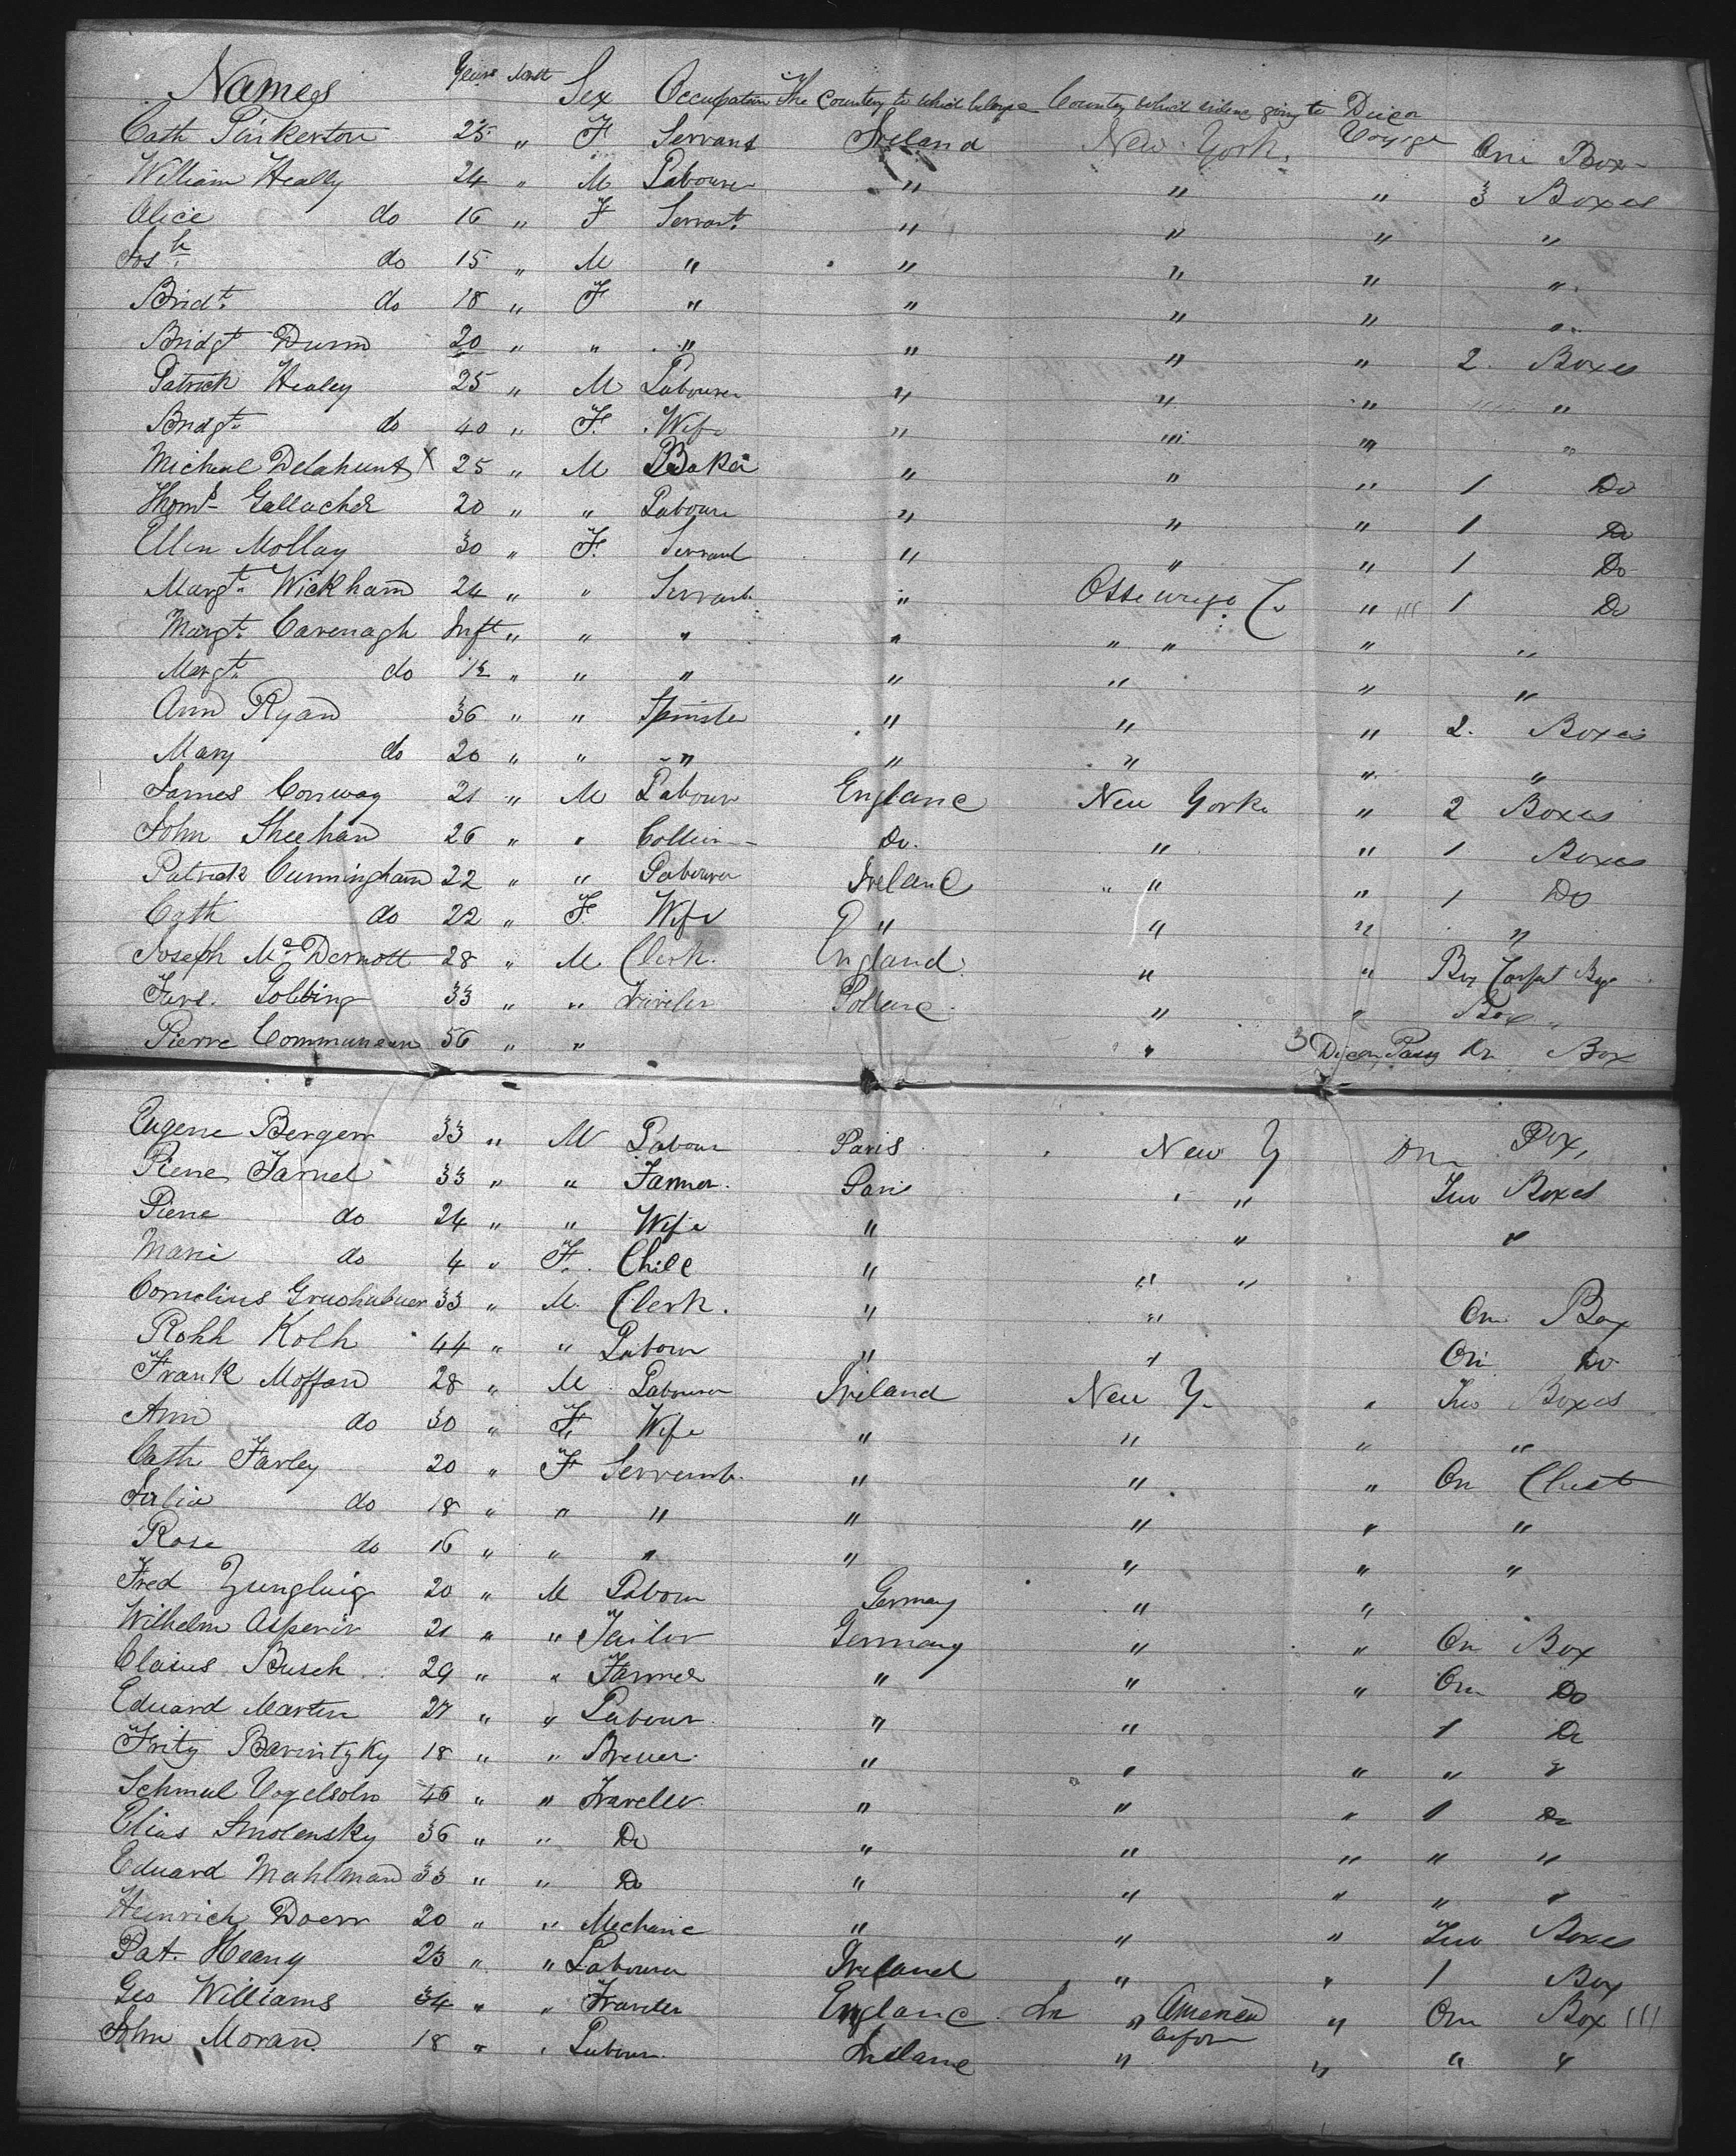 Names Years Mnth Sex Occupation The Country to which belongs Country which going to Died on Voyage
Cath Pinkerton 25 " F Servant Ireland New York. One Box
William Heally 24 " M Labourer " " " 3 Boxes
Alice do 16 " F Servant " " " "
Josh do 15 " M " " " " "
Bridt do 18 " F " " " " "
Bridgt Dunn 20 " " " " " " 2. Boxes
Patrick Healey 25 " M Labourer " " " "
Bridgt do 40 " F. Wife " " " "
Micheal Delahunt X 25 " M Baker " " " 1 Do
Thoms Gallacher 20 " " Labourer " " " 1 Do
Ellen Mollay 30 " F. Servant " " " 1 Do
Margt Wickham 24 " " Servant " " 1 Do
Margt Cavenagh Inft " " " " " " " "
Margt do " " " " " " "
Ann Ryan 36 " " Spinster " " " 2. Boxes
Mary do 20 " " " " " " "
James Conway 21 " M Labour England New York " 2 Boxes
John Sheehan 26 " " Collier Do. " " 1 Boxes
Patrick Cunningham 22 " " Labourer Ireland " " " 1 Do
Cath do 22 " F Wife " " " "
Joseph Mc Dermott 28 " M Clerk. England " " Box Carpet Bag
Golbing 33 " " Traveler Polland " " Box "
Pierre Communeau 56 " " " 3 Box
Eugene Berger 33 " M Labour Paris New Y One Box,
Piere Jarnel 33 " " Farmer. Paris " " Two Boxes
Piene do 24 " " Wife " " "
Marie do 4 " F. Child " " "
Cornelius Gruohubuer 33 " M. Clerk. " " One Box
Rohh Kolh 44 " " Labour " " On Do
Frank Moffan 28 " M Labourer Ireland New Y. " Two Boxes
Ann do 30 " F. Wife " " " "
Cath Farley 20 " F Servant " " " On Chest
Julia do 18 " " " " " " "
Rose do 16 " " " " " " "
Fred Zungluig 20 " M Labour Germany " "
Wilhelm Asperir 21 " " Tailor Germany " " On Box
Claius Busch 29 " " Farmer " " " One Do
Eduard Marten 27 " " Labour " " 1 Do
Fritz Bavintzky 18 " " Brewer. " " " "
Schmul Vogelsohn 46 " " Traveler. " " " 1 Do
Elias Smolensky 36 " " Do " " " " "
Eduard Mahlman 33 " " Do " " " " "
Heinrich Doerr 20 " " Mechanic " " " Two Boxes
Pat. Heany 23 " " Labourer Ireland " " 1 Box
Geo Williams 34 " " Traveler England In " America before " One Box
John Moran 18 " " Labour. Ireland " " " "